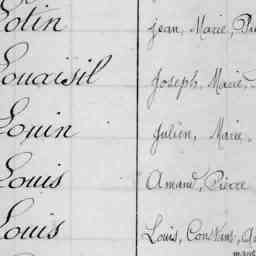 Lotin Jean, Marie,
Louaisil Joseph, Marie,
Louin Julien, Marie.
Louis Amand, Pierre
Louis Louis, Constant,